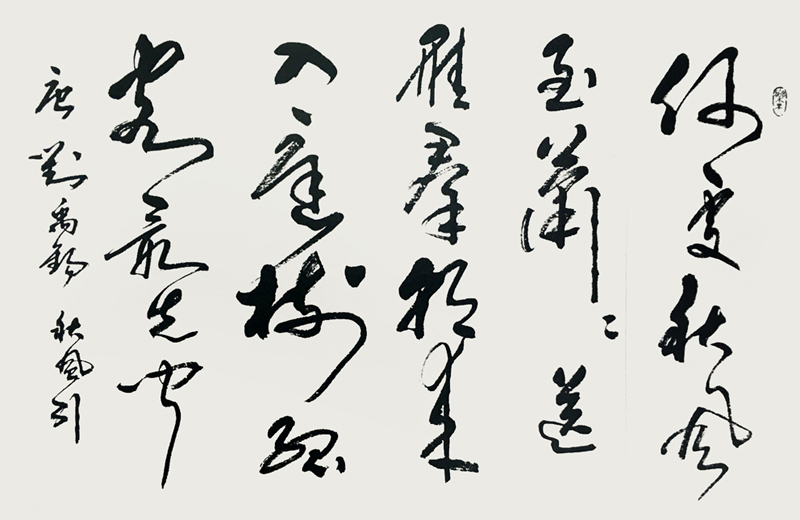 何處秋風
至蕭〻送
雁羣朝来
入庭樹孤
客最先聞
唐 劉禹錫 秋風引